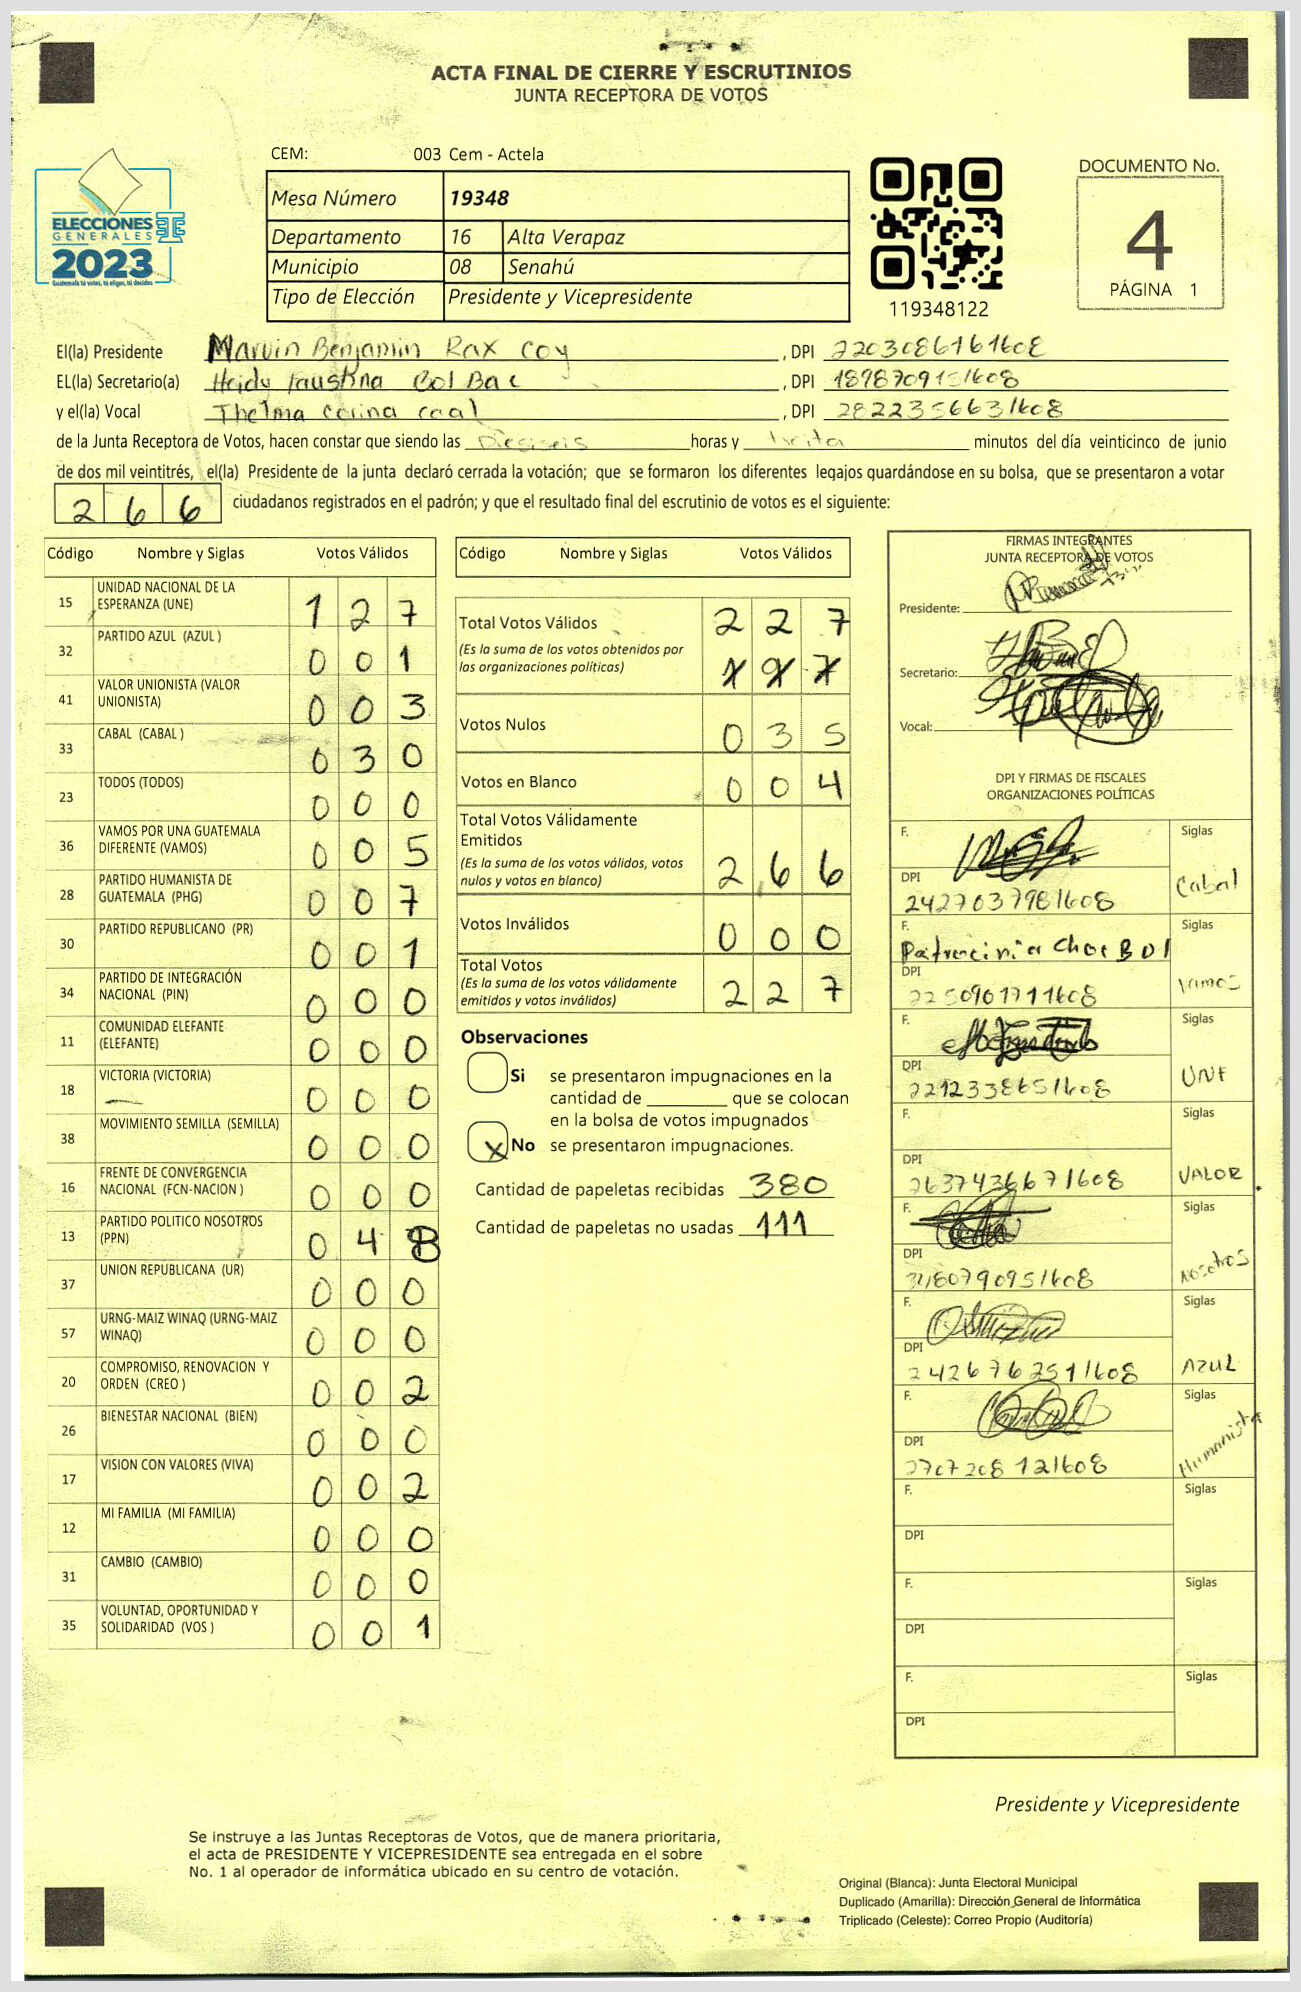 ACTA FINAL DE CIERRE Y ESCRUTINIOS
JUNTA RECEPTORA DE VOTOS
ELECCIONES
GENERALES
2023
Guatemala tú votas, tú eliges, tú decides
CEM: 003 Cem - Actela
Mesa Número 19348
Departamento 16 Alta Verapaz
Municipio 08 Senahú
Tipo de Elección Presidente y Vicepresidente
119348122
DOCUMENTO No.
4
PÁGINA 1
El(la) Presidente Marvin Benjamin Rax Coy , DPI 2203086161608
EL(la) Secretario(a) Heidy Faustina Col Bac , DPI 1898709151608
y el(la) Vocal Thelma Corina Caal , DPI 2822356631608
de la Junta Receptora de Votos, hacen constar que siendo las Dieciseis horas y treita minutos del día veinticinco de junio
de dos mil veintitrés, el(la) Presidente de la junta declaró cerrada la votación; que se formaron los diferentes legajos guardándose en su bolsa, que se presentaron a votar
266 ciudadanos registrados en el padrón; y que el resultado final del escrutinio de votos es el siguiente:
Código Nombre y Siglas Votos Válidos
15 UNIDAD NACIONAL DE LA ESPERANZA (UNE) 1 2 7
32 PARTIDO AZUL (AZUL ) 0 0 1
41 VALOR UNIONISTA (VALOR UNIONISTA) 0 0 3
33 CABAL (CABAL ) 0 3 0
23 TODOS (TODOS) 0 0 0
36 VAMOS POR UNA GUATEMALA DIFERENTE (VAMOS) 0 0 5
28 PARTIDO HUMANISTA DE GUATEMALA (PHG) 0 0 7
30 PARTIDO REPUBLICANO (PR) 0 0 1
34 PARTIDO DE INTEGRACIÓN NACIONAL (PIN) 0 0 0
11 COMUNIDAD ELEFANTE (ELEFANTE) 0 0 0
18 VICTORIA (VICTORIA) 0 0 0
38 MOVIMIENTO SEMILLA (SEMILLA) 0 0 0
16 FRENTE DE CONVERGENCIA NACIONAL (FCN-NACION ) 0 0 0
13 PARTIDO POLITICO NOSOTROS (PPN) 0 4 8
37 UNION REPUBLICANA (UR) 0 0 0
57 URNG-MAIZ WINAQ (URNG-MAIZ WINAQ) 0 0 0
20 COMPROMISO, RENOVACION Y ORDEN (CREO ) 0 0 2
26 BIENESTAR NACIONAL (BIEN) 0 0 0
17 VISION CON VALORES (VIVA) 0 0 2
12 MI FAMILIA (MI FAMILIA) 0 0 0
31 CAMBIO (CAMBIO) 0 0 0
35 VOLUNTAD, OPORTUNIDAD Y SOLIDARIDAD (VOS ) 0 0 1
Código Nombre y Siglas Votos Válidos
Total Votos Válidos 2 2 7
(Es la suma de los votos obtenidos por
las organizaciones políticas)
Votos Nulos 0 3 5
Votos en Blanco 0 0 4
Total Votos Válidamente
Emitidos
(Es la suma de los votos válidos, votos
nulos y votos en blanco) 2 6 6
Votos Inválidos 0 0 0
Total Votos
(Es la suma de los votos válidamente
emitidos y votos inválidos) 2 2 7
Observaciones
Si se presentaron impugnaciones en la
cantidad de ________ que se colocan
en la bolsa de votos impugnados
x No se presentaron impugnaciones.
Cantidad de papeletas recibidas 380
Cantidad de papeletas no usadas 111
FIRMAS INTEGRANTES
JUNTA RECEPTORA DE VOTOS
Presidente:
Secretario:
Vocal:
DPI Y FIRMAS DE FISCALES
ORGANIZACIONES POLÍTICAS
F. Siglas
DPI Cabal
2427037981608
F. Siglas
Patrocinia Choc Bol
DPI Vamos
2250901711608
F. Siglas
DPI UNE
2212338651608
F. Siglas
DPI VALOR
2637436671608
F. Siglas
DPI Nosotros
3180790951608
F. Siglas
DPI AZUL
2426762511608
F. Siglas
DPI Humanista
2707208121608
F. Siglas
DPI
F. Siglas
DPI
F. Siglas
DPI
Presidente y Vicepresidente
Se instruye a las Juntas Receptoras de Votos, que de manera prioritaria,
el acta de PRESIDENTE Y VICEPRESIDENTE sea entregada en el sobre
No. 1 al operador de informática ubicado en su centro de votación.
Original (Blanca): Junta Electoral Municipal
Duplicado (Amarilla): Dirección General de Informática
Triplicado (Celeste): Correo Propio (Auditoría)